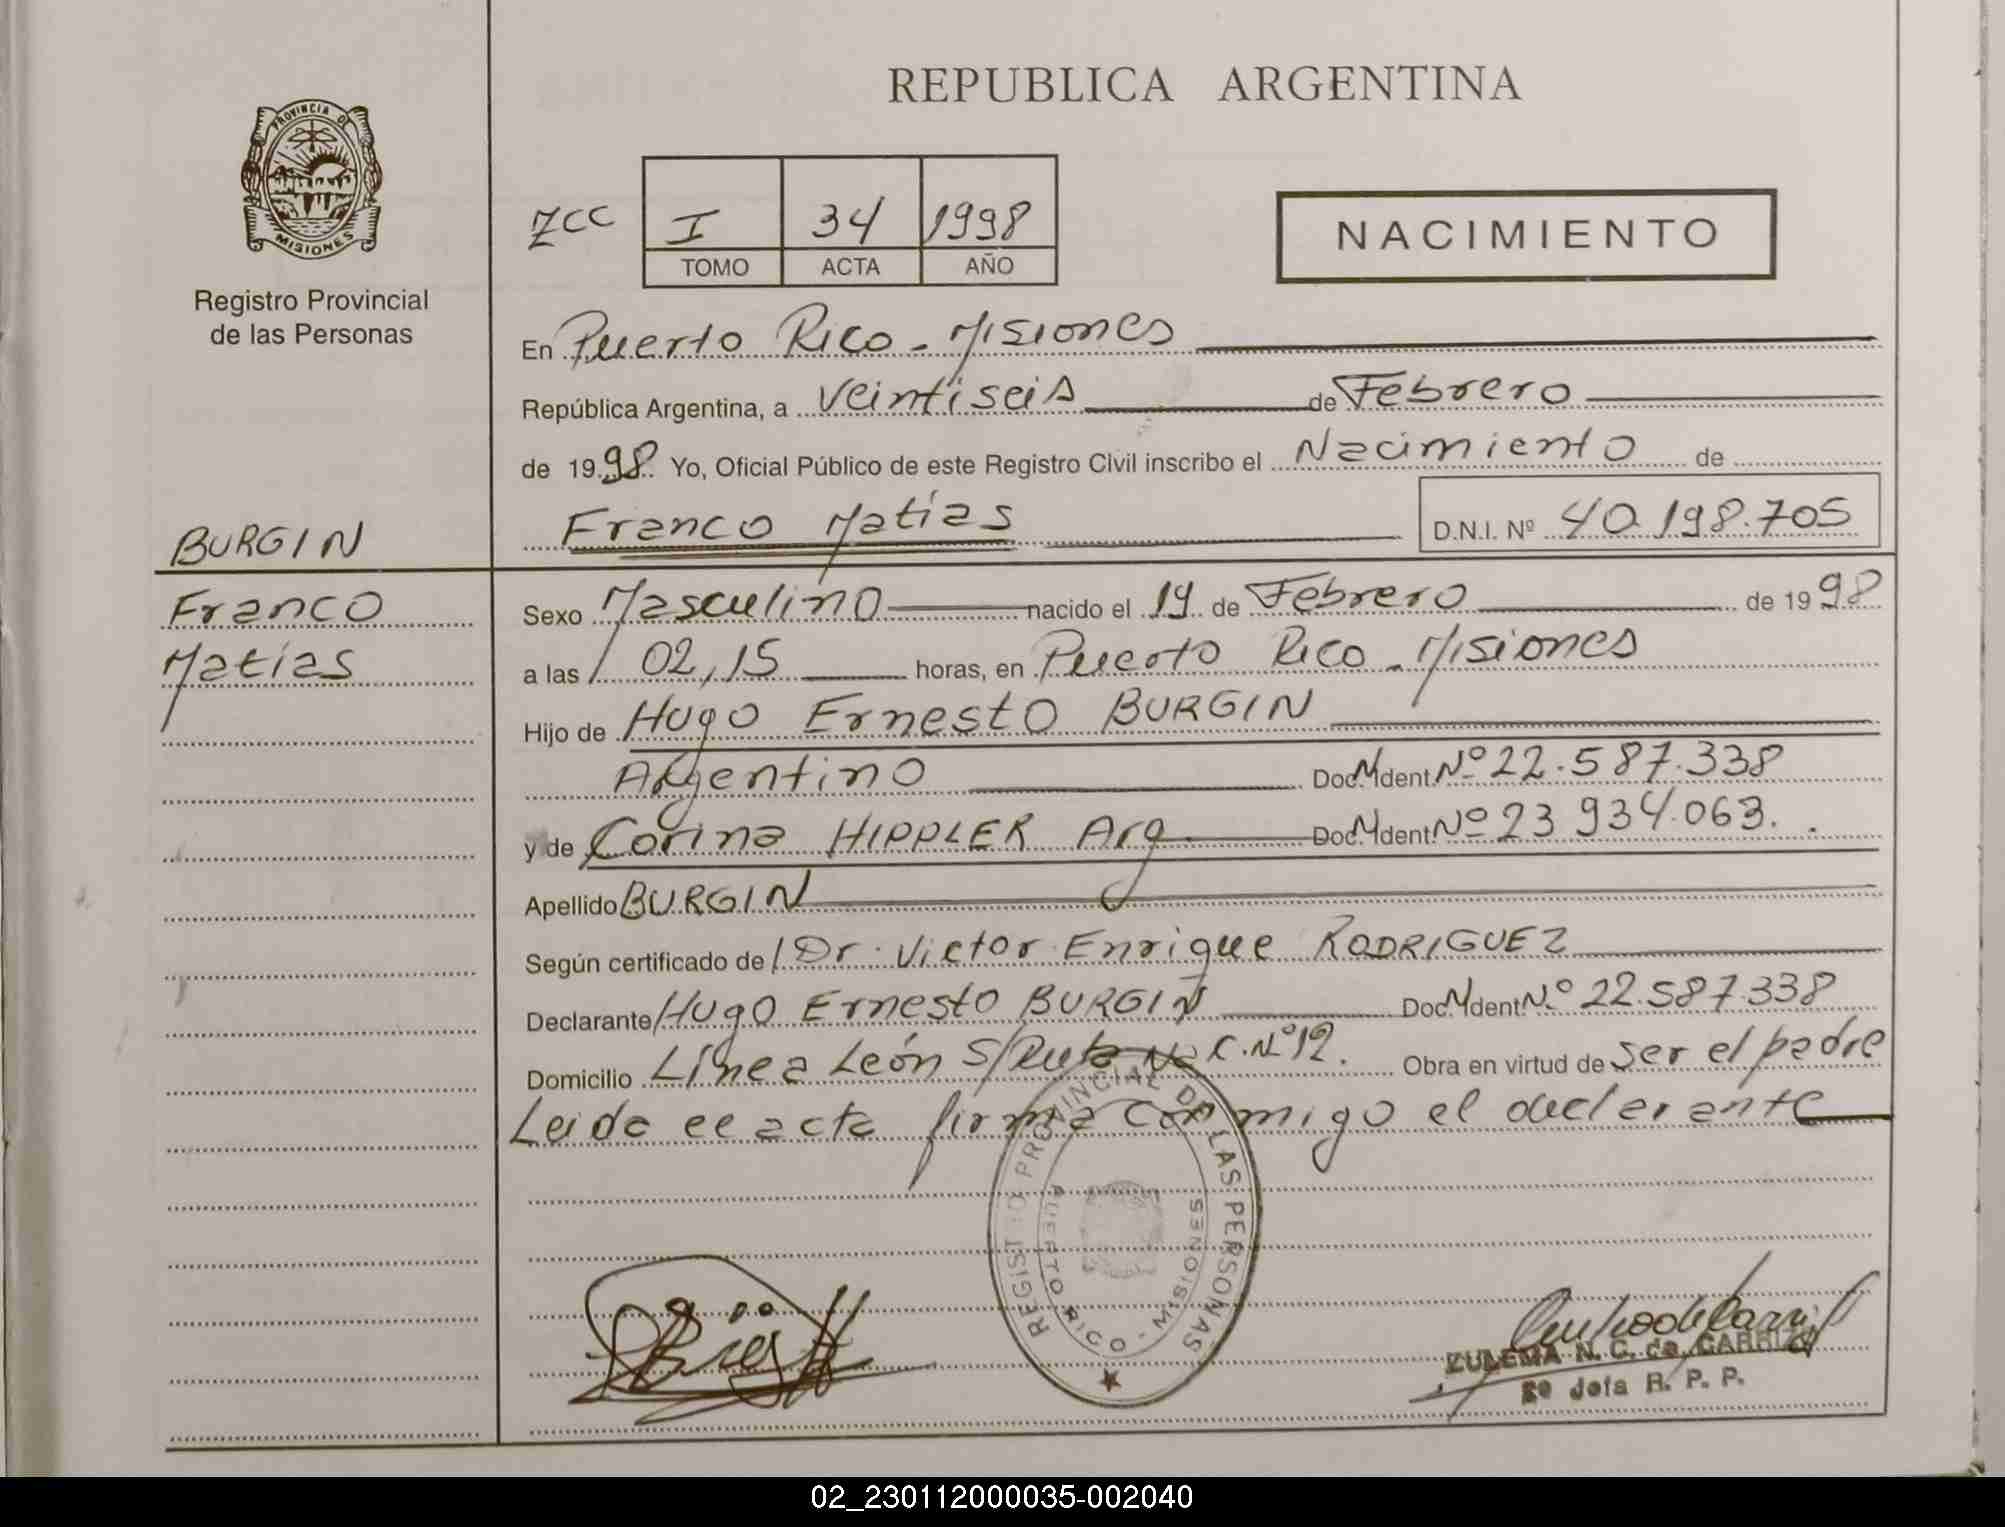 REPUBLICA ARGENTINA
PROVINCIA DE
MISIONES
Registro Provincial
de las Personas
ZCC I 34 1998
TOMO ACTA AÑO
NACIMIENTO
En Puerto Rico - Misiones
República Argentina, a Veintiseis de Febrero
de 1998 Yo, Oficial Público de este Registro Civil inscribo el Nacimiento de
Franco Matías D.N.I. Nº 40.198.705
BURGIN
Franco
Matías
Sexo Masculino nacido el 19 de Febrero de 1998
a las 02,15 horas, en Puerto Rico - Misiones
Hijo de Hugo Ernesto BURGIN
Argentino Doc. Ident. Nº 22.587.338
y de Corina HIPPLER Arg Doc. Ident. Nº 23 934.063.
Apellido BURGIN
Según certificado de Dr. Victor Enrique RODRIGUEZ
Declarante Hugo Ernesto BURGIN Doc. Ident. Nº 22.587.338
Domicilio Línea León S/Ruta Nac. Nº 12. Obra en virtud de ser el padre
Leida el acta firma conmigo el declarante
REGISTRO PROVINCIAL DE LAS PERSONAS
PUERTO RICO - MISIONES
ZULEMA N. C. de CARRIZO
2º Jefa R. P. P.
02_230112000035-002040